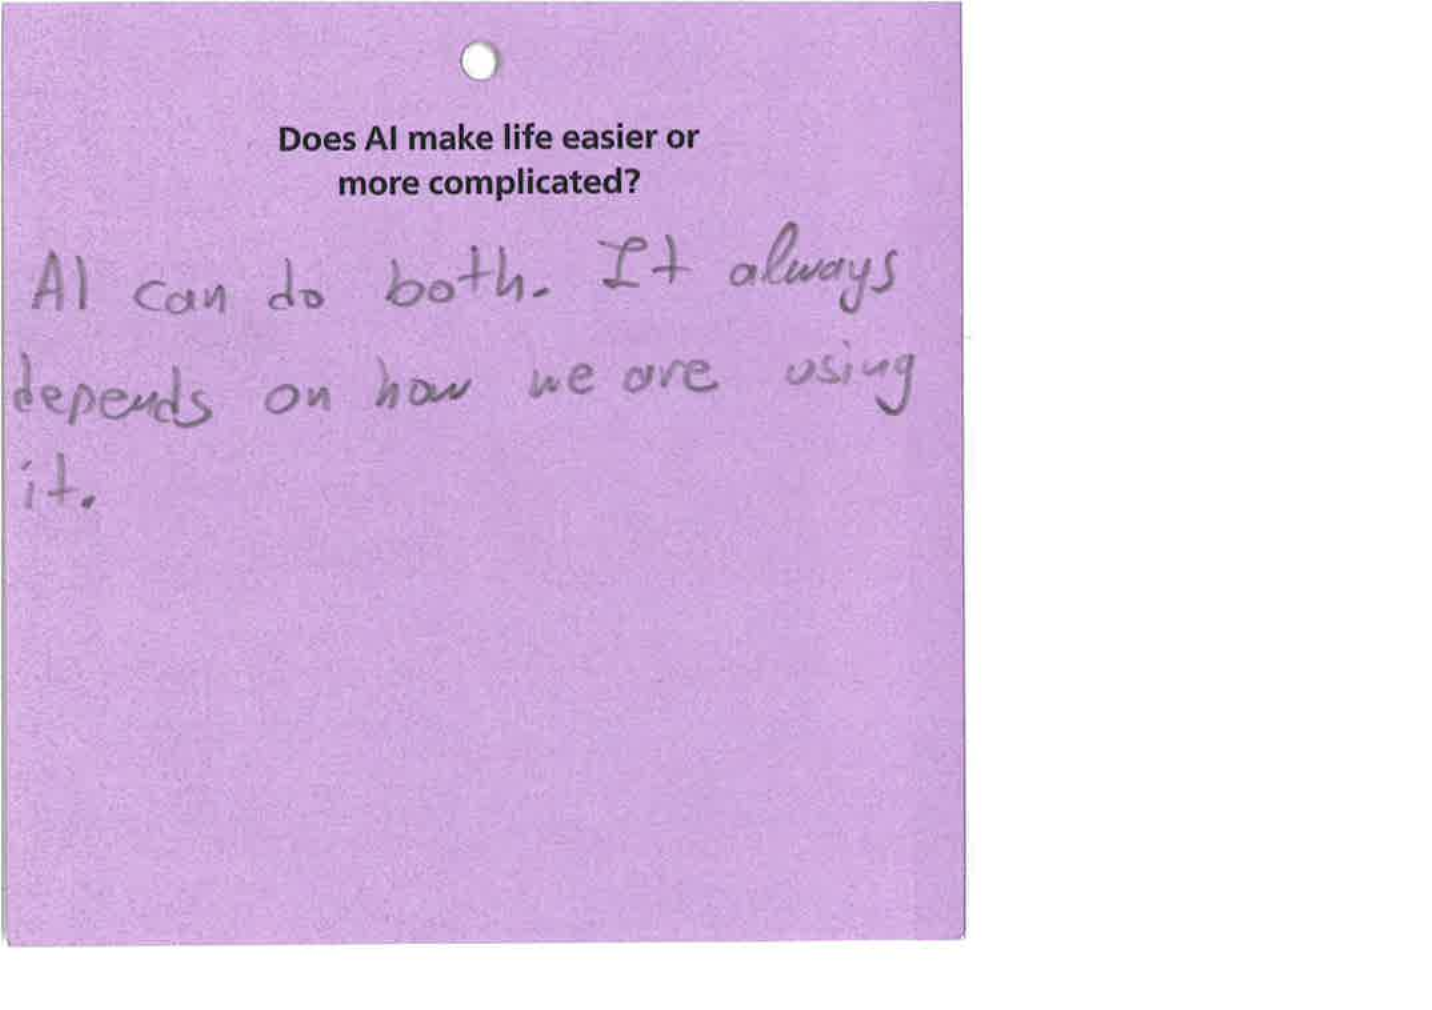 Does AI make life easier or
more complicated?
AI can do both. It always
depends on how we are using
it.